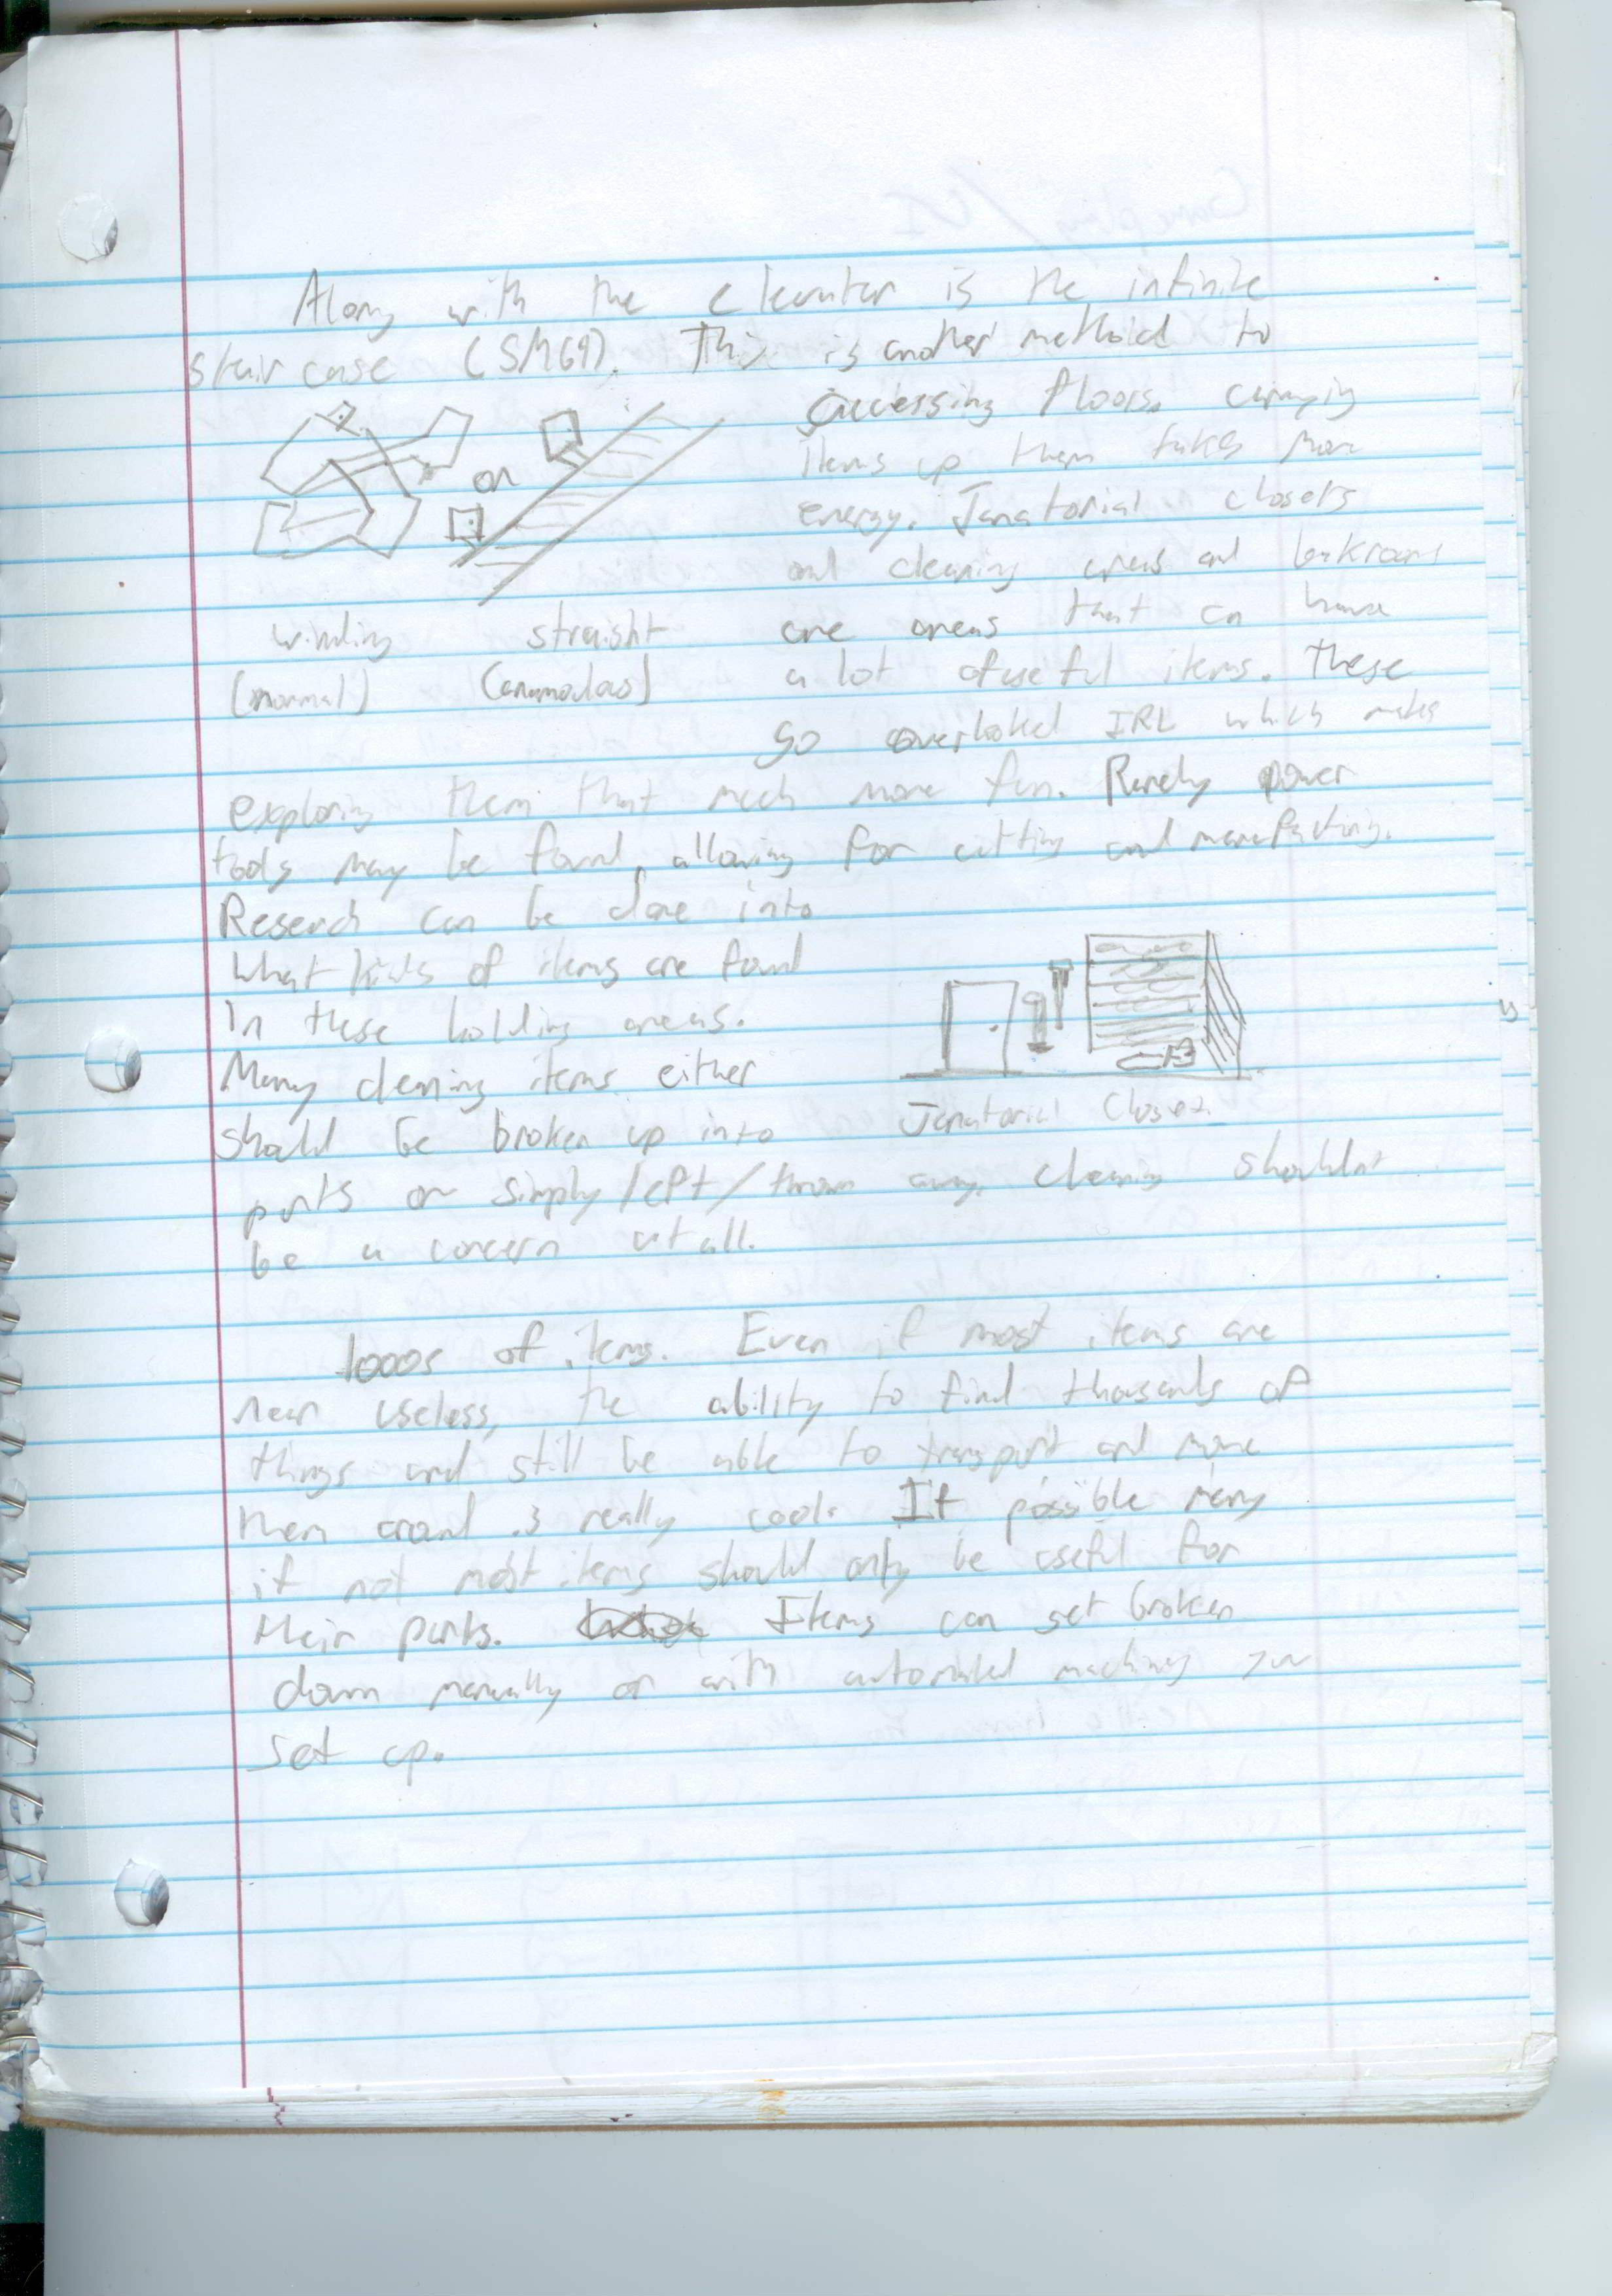 Along with the elevator is the infinite
stair case (SM64). This is another method to
accessing floors. carrying
items up them takes more
energy. Janatorial closets
and cleaning areas and backrooms
are areas that can have
a lot of useful items. These
go overlooked IRL which makes
or
winding straight
(normal) (anamolas)
exploring them that much more fun. Rarely power
tools may be found, allowing for cutting and manufacturing.
Research can be done into
what kinds of items are found
In these holding areas.
Many cleaning items either
should be broken up into
Janatorial Closet
parts or simply left/thrown away. cleaning shouldnt
be a concern at all.
1000s of items. Even if most items are
near useless, the ability to find thousands of
things and still be able to transport and move
them around is really cool. If possible many
if not most items should only be useful for
their parts. Items can get broken
down manually or with automated machinery you
set up.